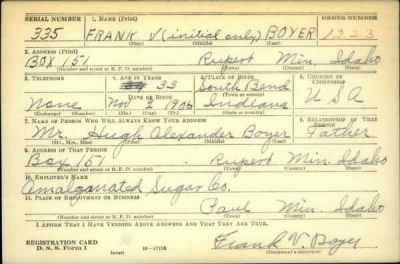 SERIAL NUMBER 1. NAME (Print) ORDER NUMBER
335 FRANK V (initial only) BOYER 1223
(First) (Middle) (Last)
2. ADDRESS (Print)
BOX 151 Rupert Min. Idaho
(Number and street or R. F. D. number) (Town) (County) (State)
3. TELEPHONE 4. AGE IN YEARS 5. PLACE OF BIRTH 6. COUNTRY OF CITIZENSHIP
33 South Bend
DATE OF BIRTH
None Nov 2 1906 Indiana U S A
(Exchange) (Number) (Mo.) (Day) (Yr.) (State or country)
7. NAME OF PERSON WHO WILL ALWAYS KNOW YOUR ADDRESS 8. RELATIONSHIP OF THAT PERSON
Mr. Hugh Alexander Boyer Father
(Mr., Mrs., Miss) (First) (Middle) (Last)
9. ADDRESS OF THAT PERSON
Box 151 Rupert Min Idaho
(Number and street or R. F. D. number) (Town) (County) (State)
10. EMPLOYER'S NAME
Amalgamated Sugar Co.
11. PLACE OF EMPLOYMENT OR BUSINESS
Paul Min. Idaho
(Number and street or R. F. D. number) (Town) (County) (State)
I AFFIRM THAT I HAVE VERIFIED ABOVE ANSWERS AND THAT THEY ARE TRUE.
REGISTRATION CARD
D. S. S. Form 1 (over) 16—17105 Frank V. Boyer
(Registrant's signature)